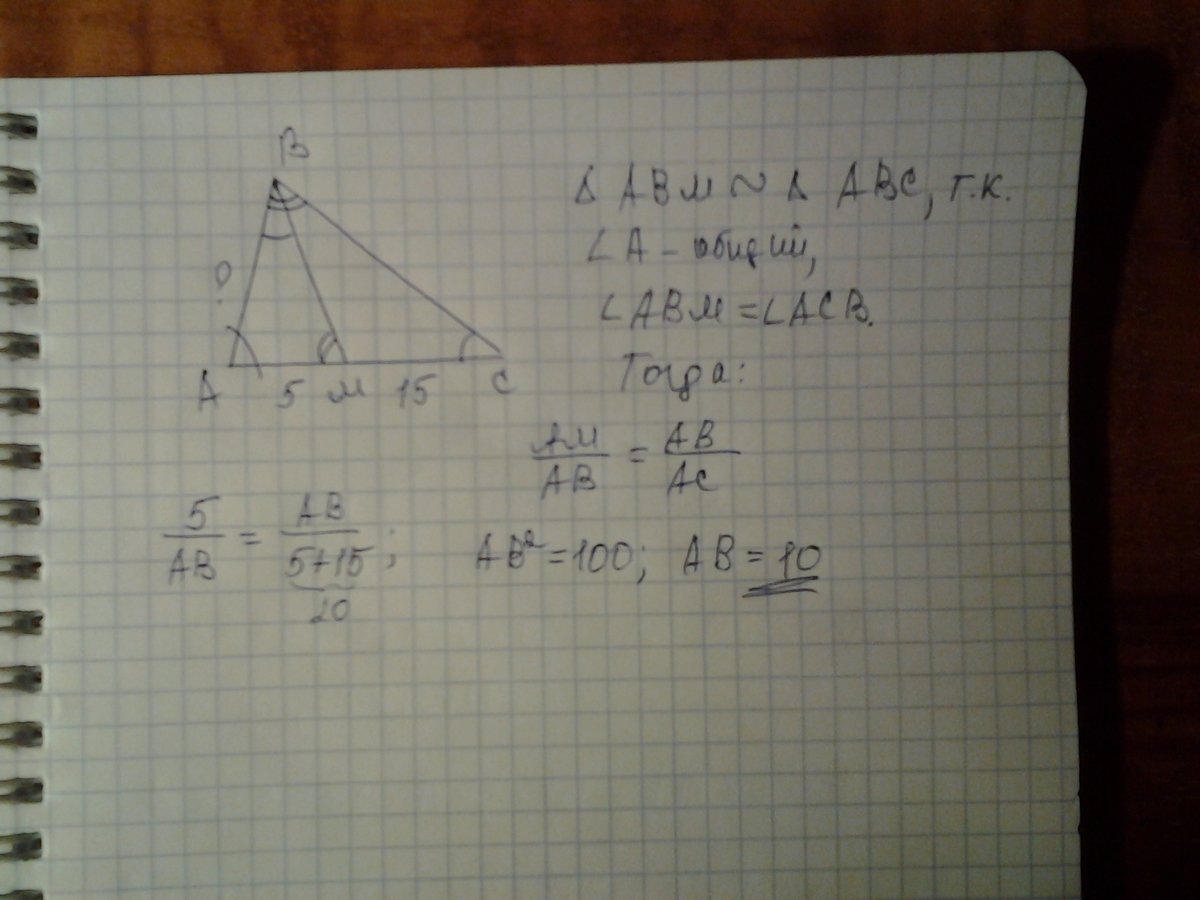 B
?
A 5 M 15 C
Δ ABM ~ Δ ABC, т.к.
∠A - общий,
∠ABM = ∠ACB.
Тогда:
AM/AB = AB/AC
5/AB = AB/(5+15); AB² = 100; AB = 10
20